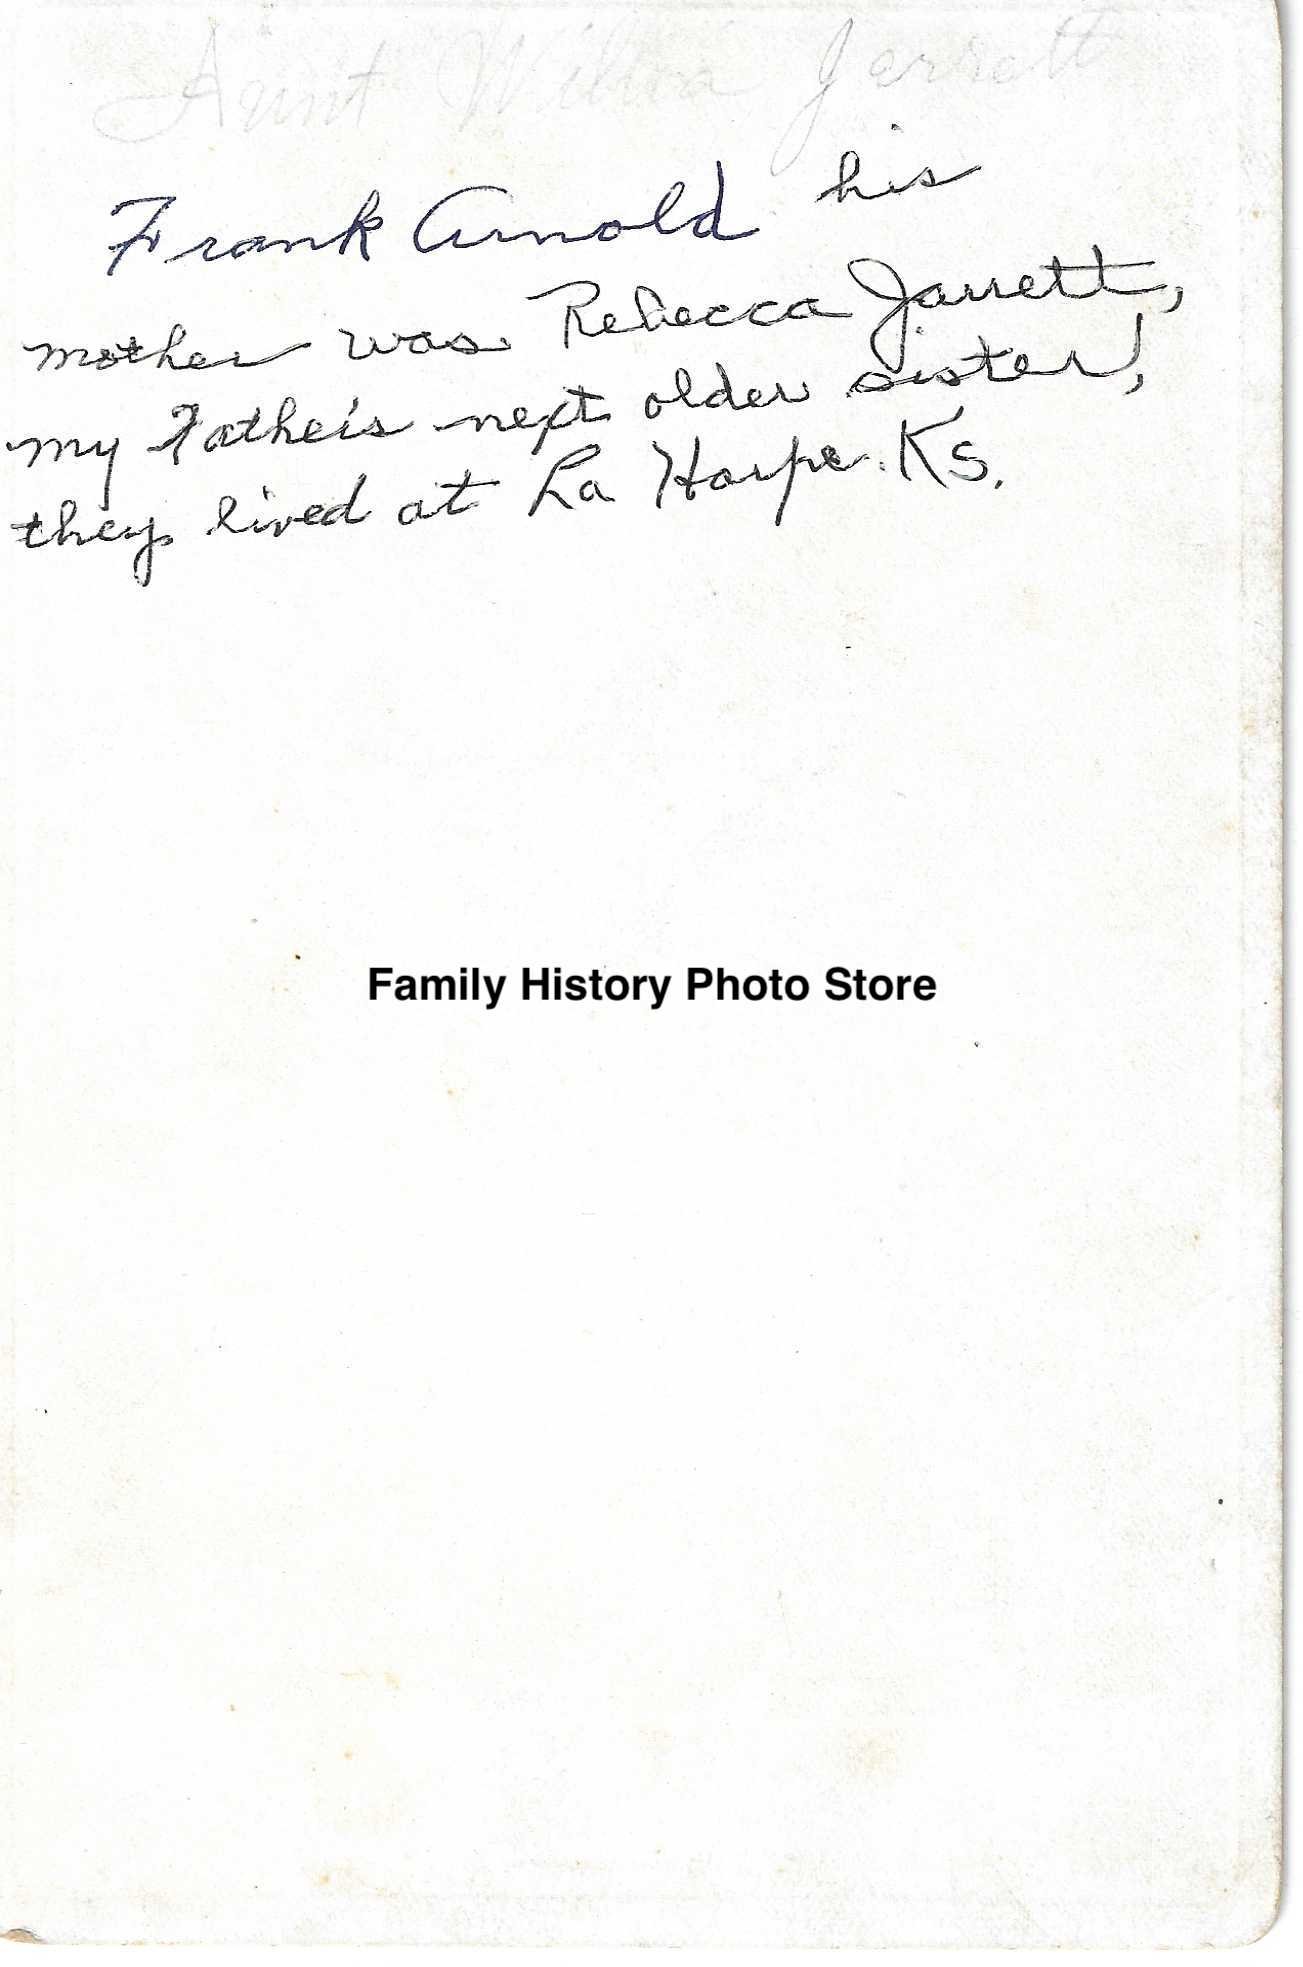 Aunt Wilma Jarrett
Frank Arnold his
mother was Rebecca Jarrett,
my Father's next older sister,
they lived at La Harpe. Ks.
Family History Photo Store